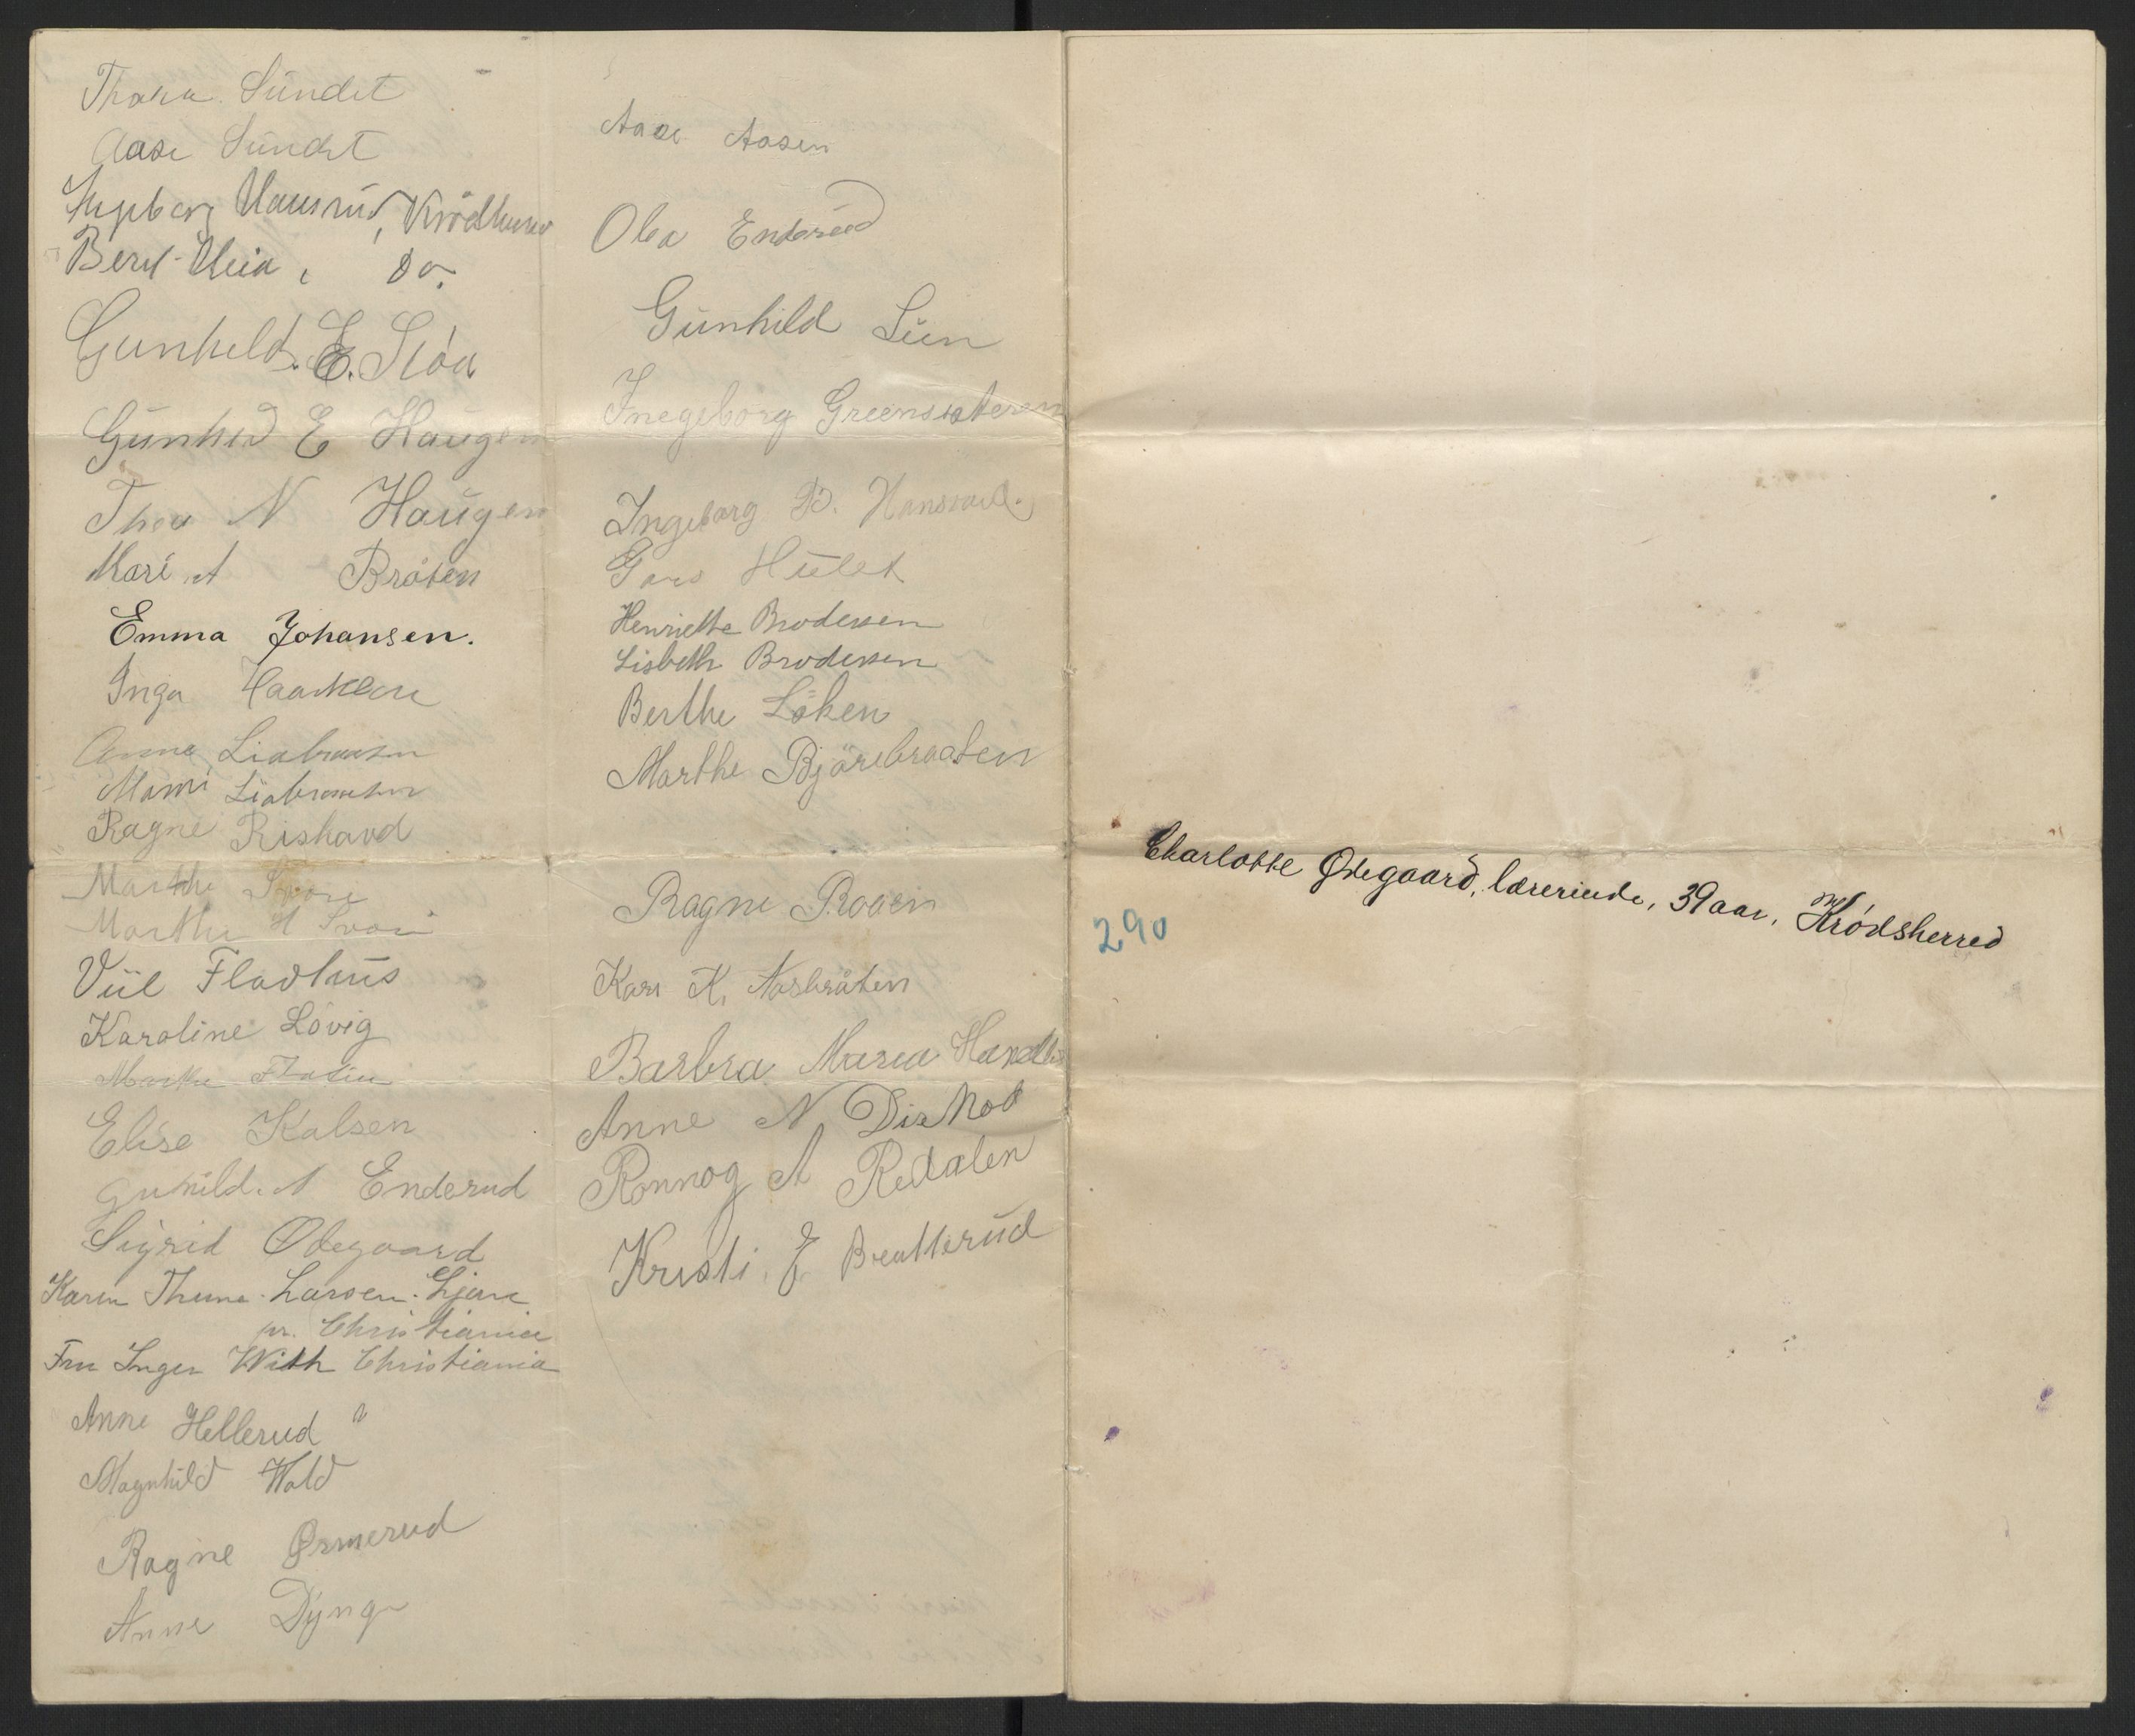 Thora Sündet
Aase Sündet
Ingeborg Hamrud, Krödherred
Berit Uleia, do.
Gunhild. E. Slóa
Günhild E Haugen
Thea N Haugen
Mari A Bråten
Emma Johansen.
Inga
Anna Liabraaten
Mami Liabraaten
Ragne Rishavd
Marthe Svori
Marthe H Svori
Viil Fladhus
Karoline Lövig
Marthe Flatin
Elise Kalsen
Guhild. A Enderud
Sigrid Ødegaard
Karen Thume-Larsen. Ljan
pr. Christiania
Fru Inger With Christiania
Anne Hellerud "
Magnhild Wold
Ragne Ormerud
Anne Dynge
Aase Aasen
Olea Enderud
Günhild Lien
Inegeborg Greensæteren
Ingeborg B. Hansrud.
Guro Hület
Henriette Brodersen
Lisbeth Brodersen
Berthe Löken
Marthe Björebraaten
Ragne Roaen
Kari K. Nasbråten
Barbra Maria
Anne N Dishod
Ronnog A Redalen
Kristi E Bratterüd
Charlotte Ødegaard, lærerinde, 39 aar, Krødsherred
290